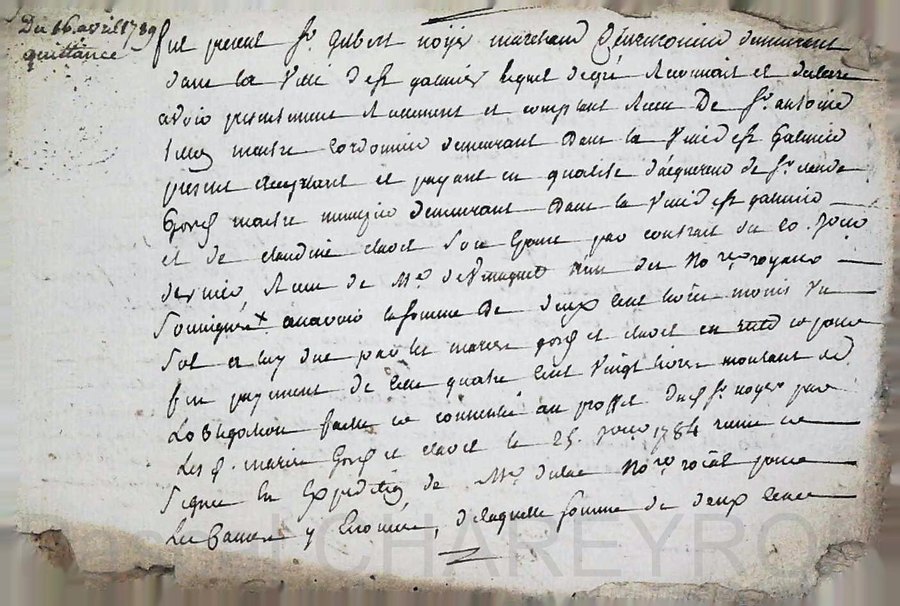 Du 16 avril 1789
quittance
fut present Sr. gilbert noyer marchand demeurant
dans la ville de st galmier lequel de gré reconnait et declare
avoir presentement reellement et comptant Receu De Sr. antoine
maitre Cordonnier demeurant Dans la ville de st Galmier
present acceptant et payant en qualité d'acquereur de Sr. claude
maitre demeurant Dans la ville de st galmier
et de claudine clavel Sa par contrat du 20.
dernier, Receu de Me. l'un des Nores. royaux
Soussignés a savoir la somme De deux cent livres moins un
Sol a luy due par les maries et clavel en reste et pour
fin payement de celle quatre cent vingt livres montant de
L'obligation faitte et consentie au proffit dud. Sr. noyer par
Les d. maries et clavel le 25. 1784
Signée En Expedition de Me. dulac Nore. roial pour
Les causes y Enoncées, de laquelle somme de deux cent
CHAREYRO